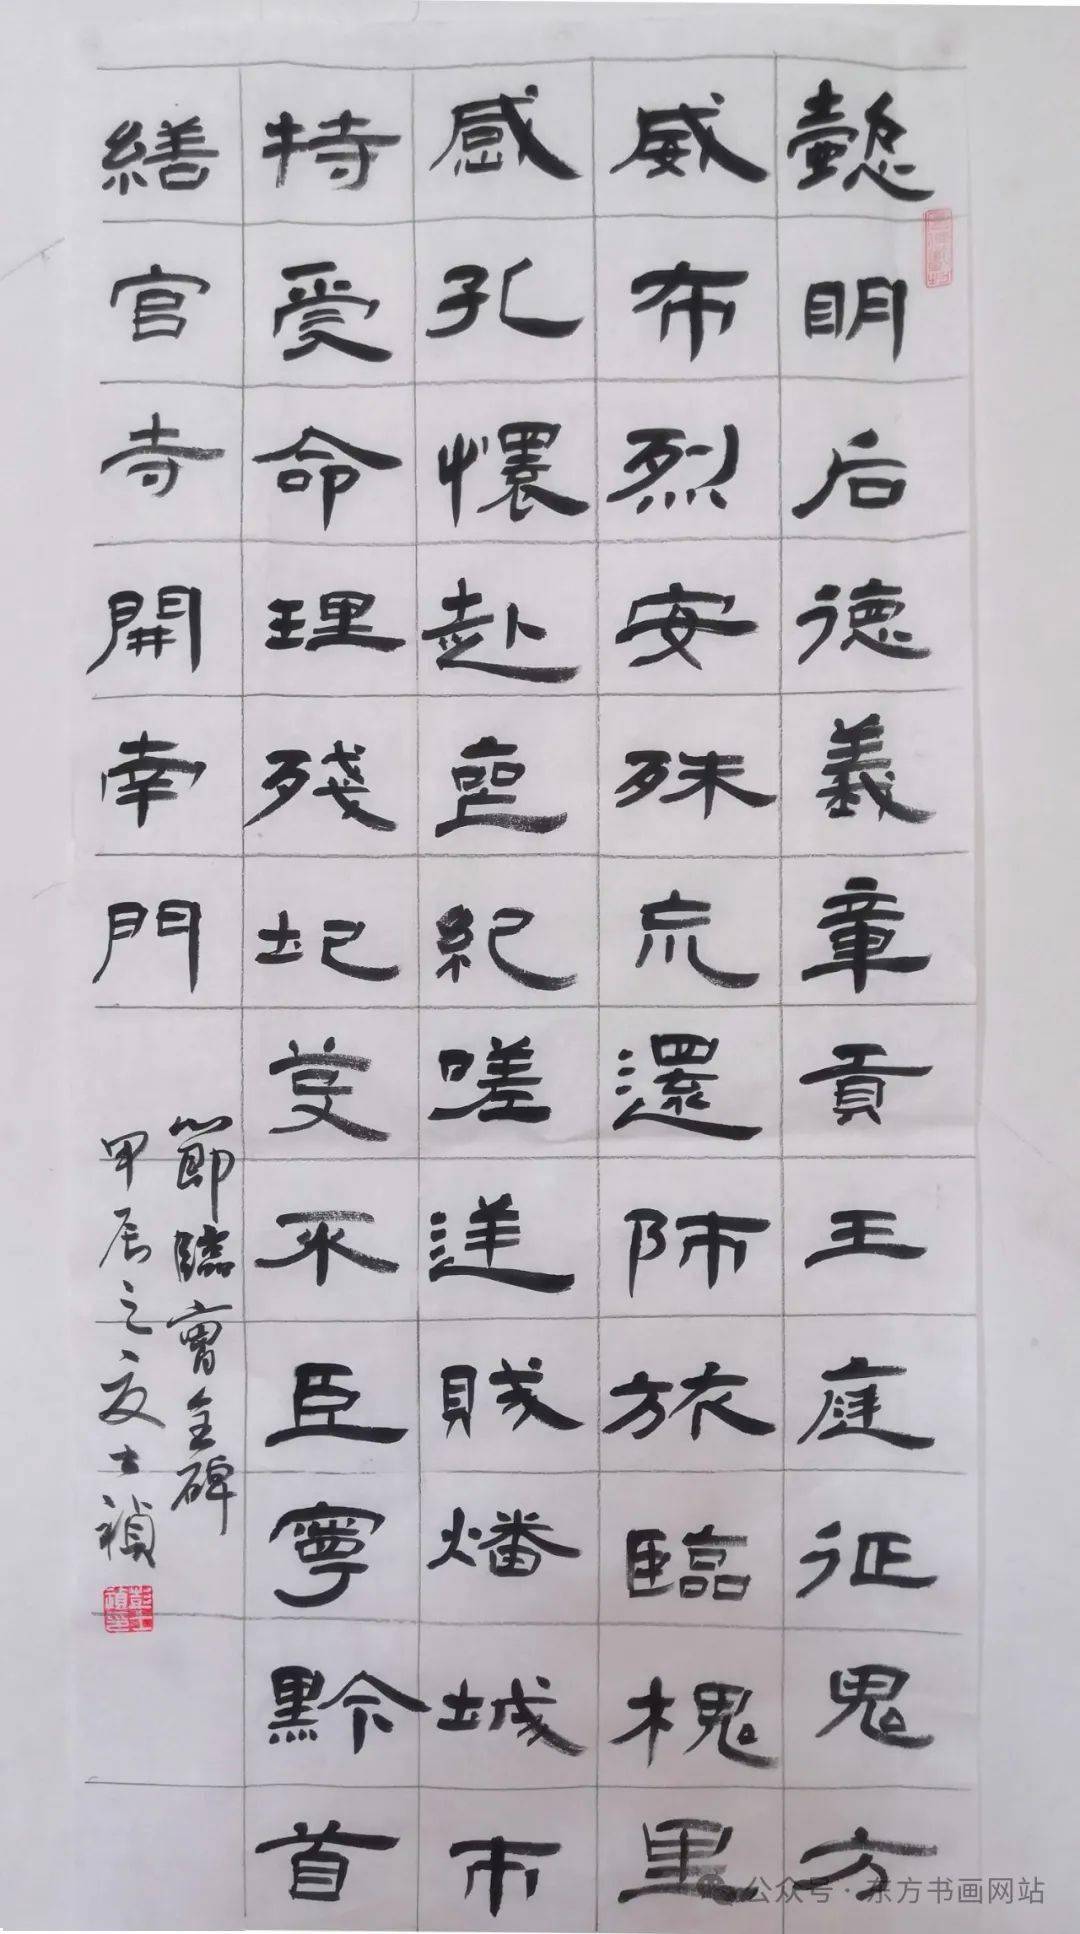 懿明后德義章貢王庭征鬼方
威布烈安殊荒還師旅臨槐里
感孔懷赴喪紀嗟逆賊燔城市
特受命理殘圮芟不臣寧黔首
繕官寺開南門
節臨曹全碑
甲辰之夏士禎
彭士禎印
公众号·东方书画网站